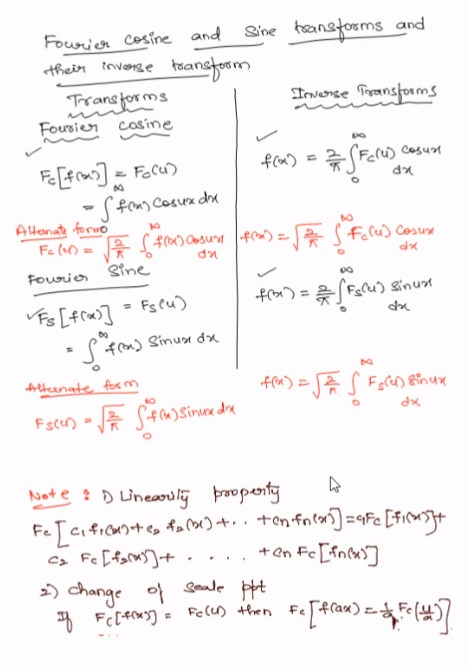 Fourier cosine and Sine transforms and
their inverse transform
Transforms
Fourier cosine
Fc[f(x)] = Fc(u)
= ∫₀^∞ f(x) Cosux dx
Alternate form
Fc(u) = √(2/π) ∫₀^∞ f(x) Cosux dx
Fourier Sine
Fs[f(x)] = Fs(u)
= ∫₀^∞ f(x) Sinux dx
Alternate form
Fs(u) = √(2/π) ∫₀^∞ f(x) Sinux dx
Inverse Transforms
f(x) = 2/π ∫₀^∞ Fc(u) Cosux dx
f(x) = √(2/π) ∫₀^∞ Fc(u) Cosux dx
f(x) = 2/π ∫₀^∞ Fs(u) Sinux dx
f(x) = √(2/π) ∫₀^∞ Fs(u) Sinux dx
Note : 1) Linearity property
Fc[c₁f₁(x)+c₂ f₂(x)+..+cnfn(x)]=c₁Fc[f₁(x)]+
c₂ Fc[f₂(x)]+ . . . . +cn Fc[fn(x)]
2) Change of scale ppt
If Fc[f(x)] = Fc(u) then Fc[f(ax)=1/a Fc(u/a)]